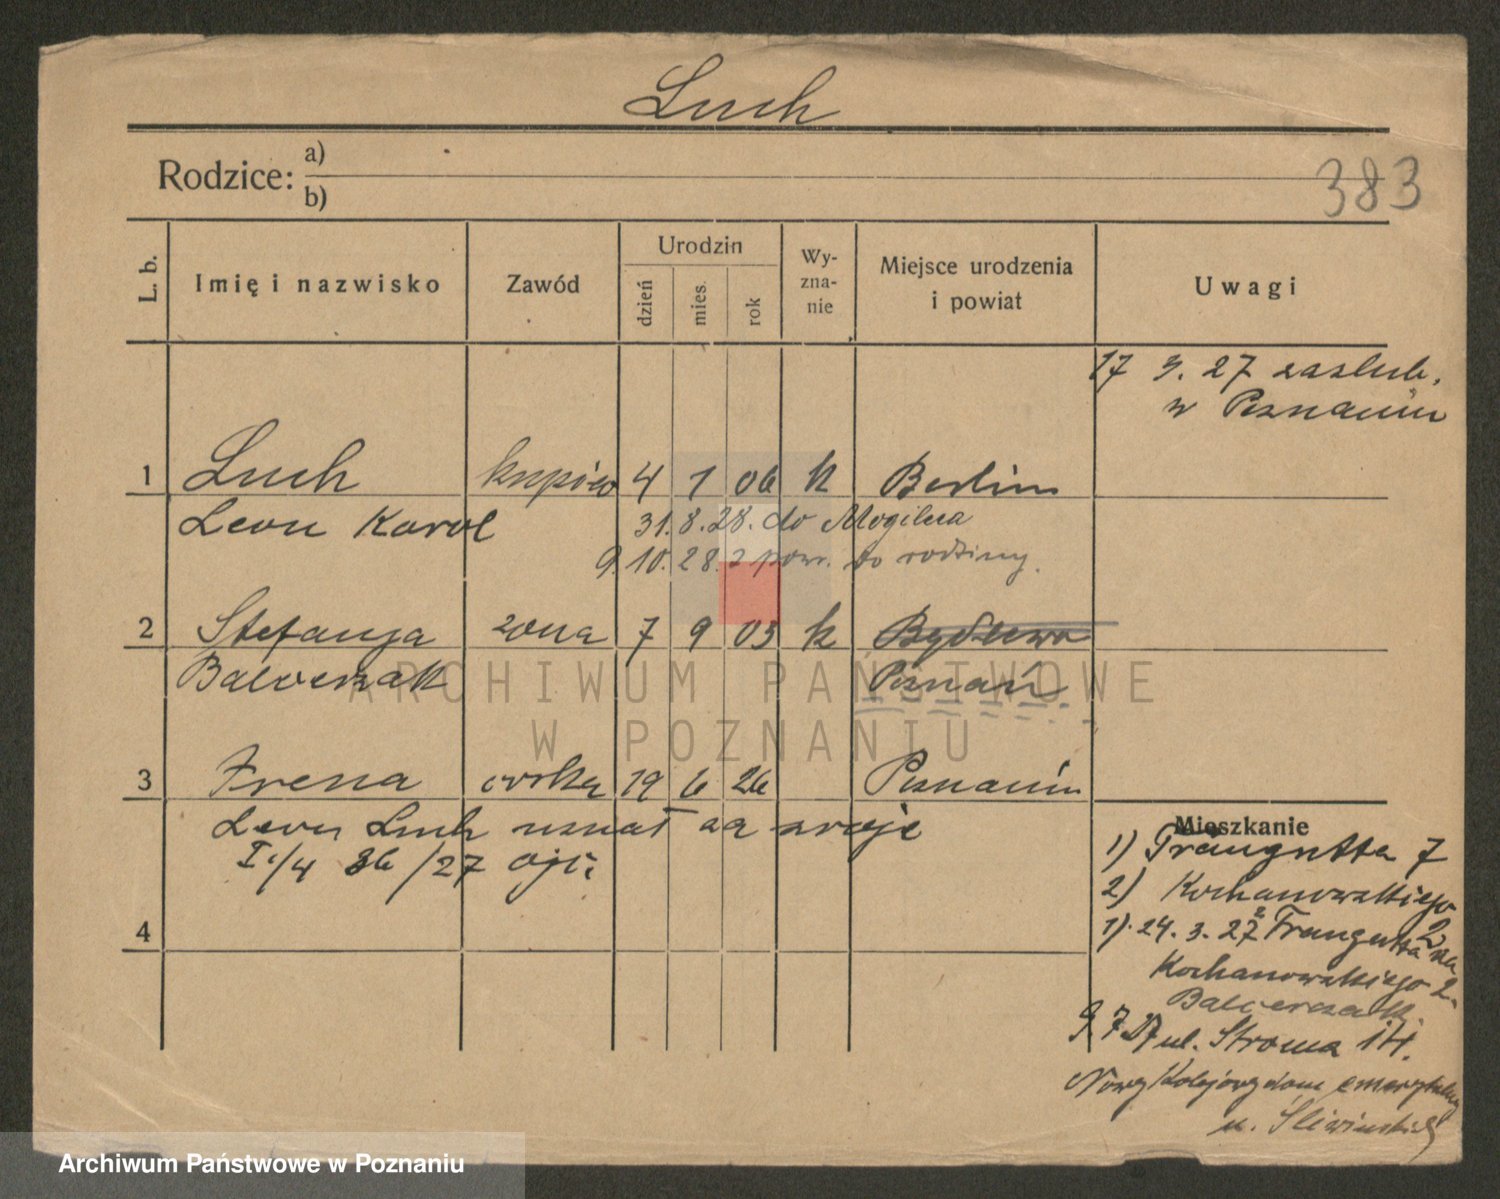 Luch
Rodzice: a)
b)
383
L. b.
Imię i nazwisko
Zawód
Urodzin
dzień
mies.
rok
Wy-
zna-
nie
Miejsce urodzenia
i powiat
Uwagi
17 3. 27 zaslub.
w Poznaniu
1 Luch kupiec 4 1 06 k Berlin
Leon Karol 31.8.28. do Mogilna
9.10.28. z pow. do rodziny.
2 Stefanja żona 7 9 03 k
Balcerzak Poznań
3 Irena córka 19 6 26 Poznaniu
Leon Luch uznał za swoje
I./4 36/27 ojc.
4
Mieszkanie
1) Traugutta 7
2) Kochanowskiego 2
1). 24. 3. 27 z Traugutta na
Kochanowskiego 2.
Balcerzak.
9 7 27 ul. Stroma 14.
Nowy Kolejowy dom emerytalny
u. Śliwińskiej
ARCHIWUM PAŃSTWOWE
W POZNANIU
Archiwum Państwowe w Poznaniu